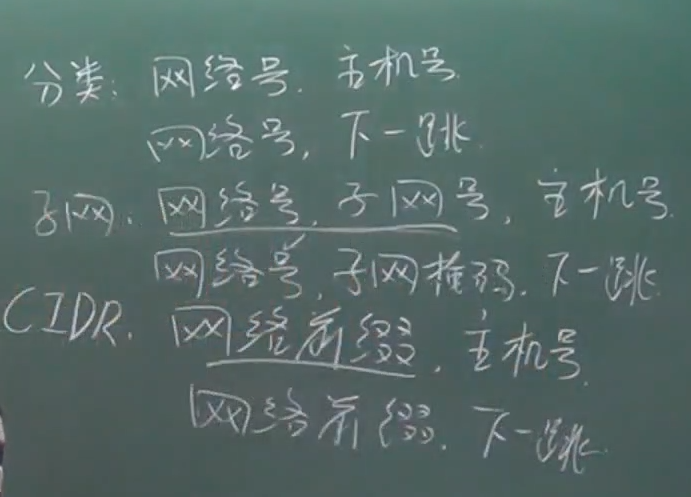 分类：网络号．主机号
网络号，下一跳
子网：网络号，子网号，主机号
网络号，子网掩码．下一跳
CIDR．网络前缀．主机号
网络前缀．下一跳